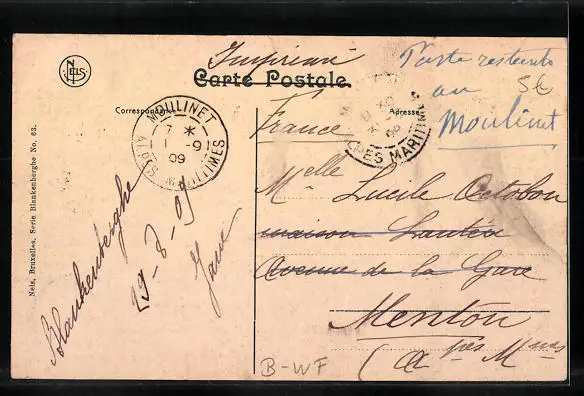 NELS
Imprimé
Carte Postale
Correspondance
Adresse
MOULINET
7 *
1 -9
09
ALPES MARITIMES
ALPES MARITIMES
Poste restante
au
Moulinet
5€
France
Melle Lucile Octobon
maison
Avenue de la Gare
Menton
(Alpes Mmes
Blankenberghe
29-8-09
B-WF
Nels, Bruxelles, Serie Blankenberghe No. 63.